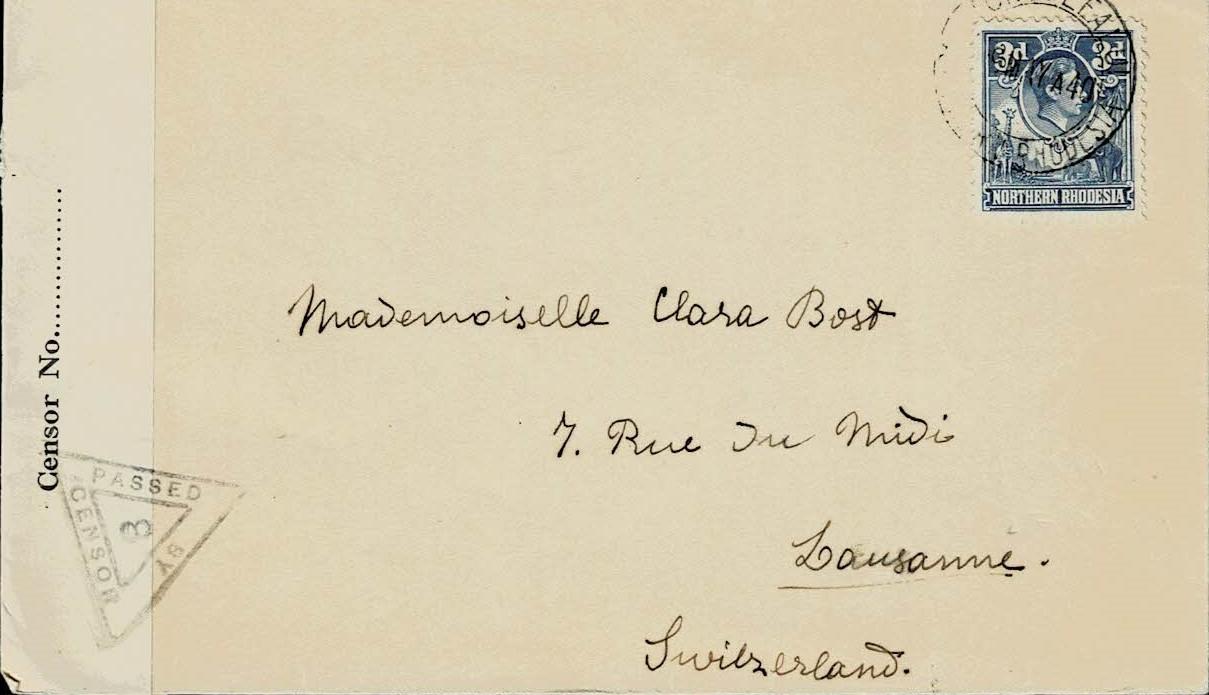 3d 3d
MY A40
RHODESIA
NORTHERN RHODESIA
Mademoiselle Clara Bost
7. Rue du Midi
Lausanne.
Switzerland.
Censor No...............
PASSED
BY
CENSOR
3